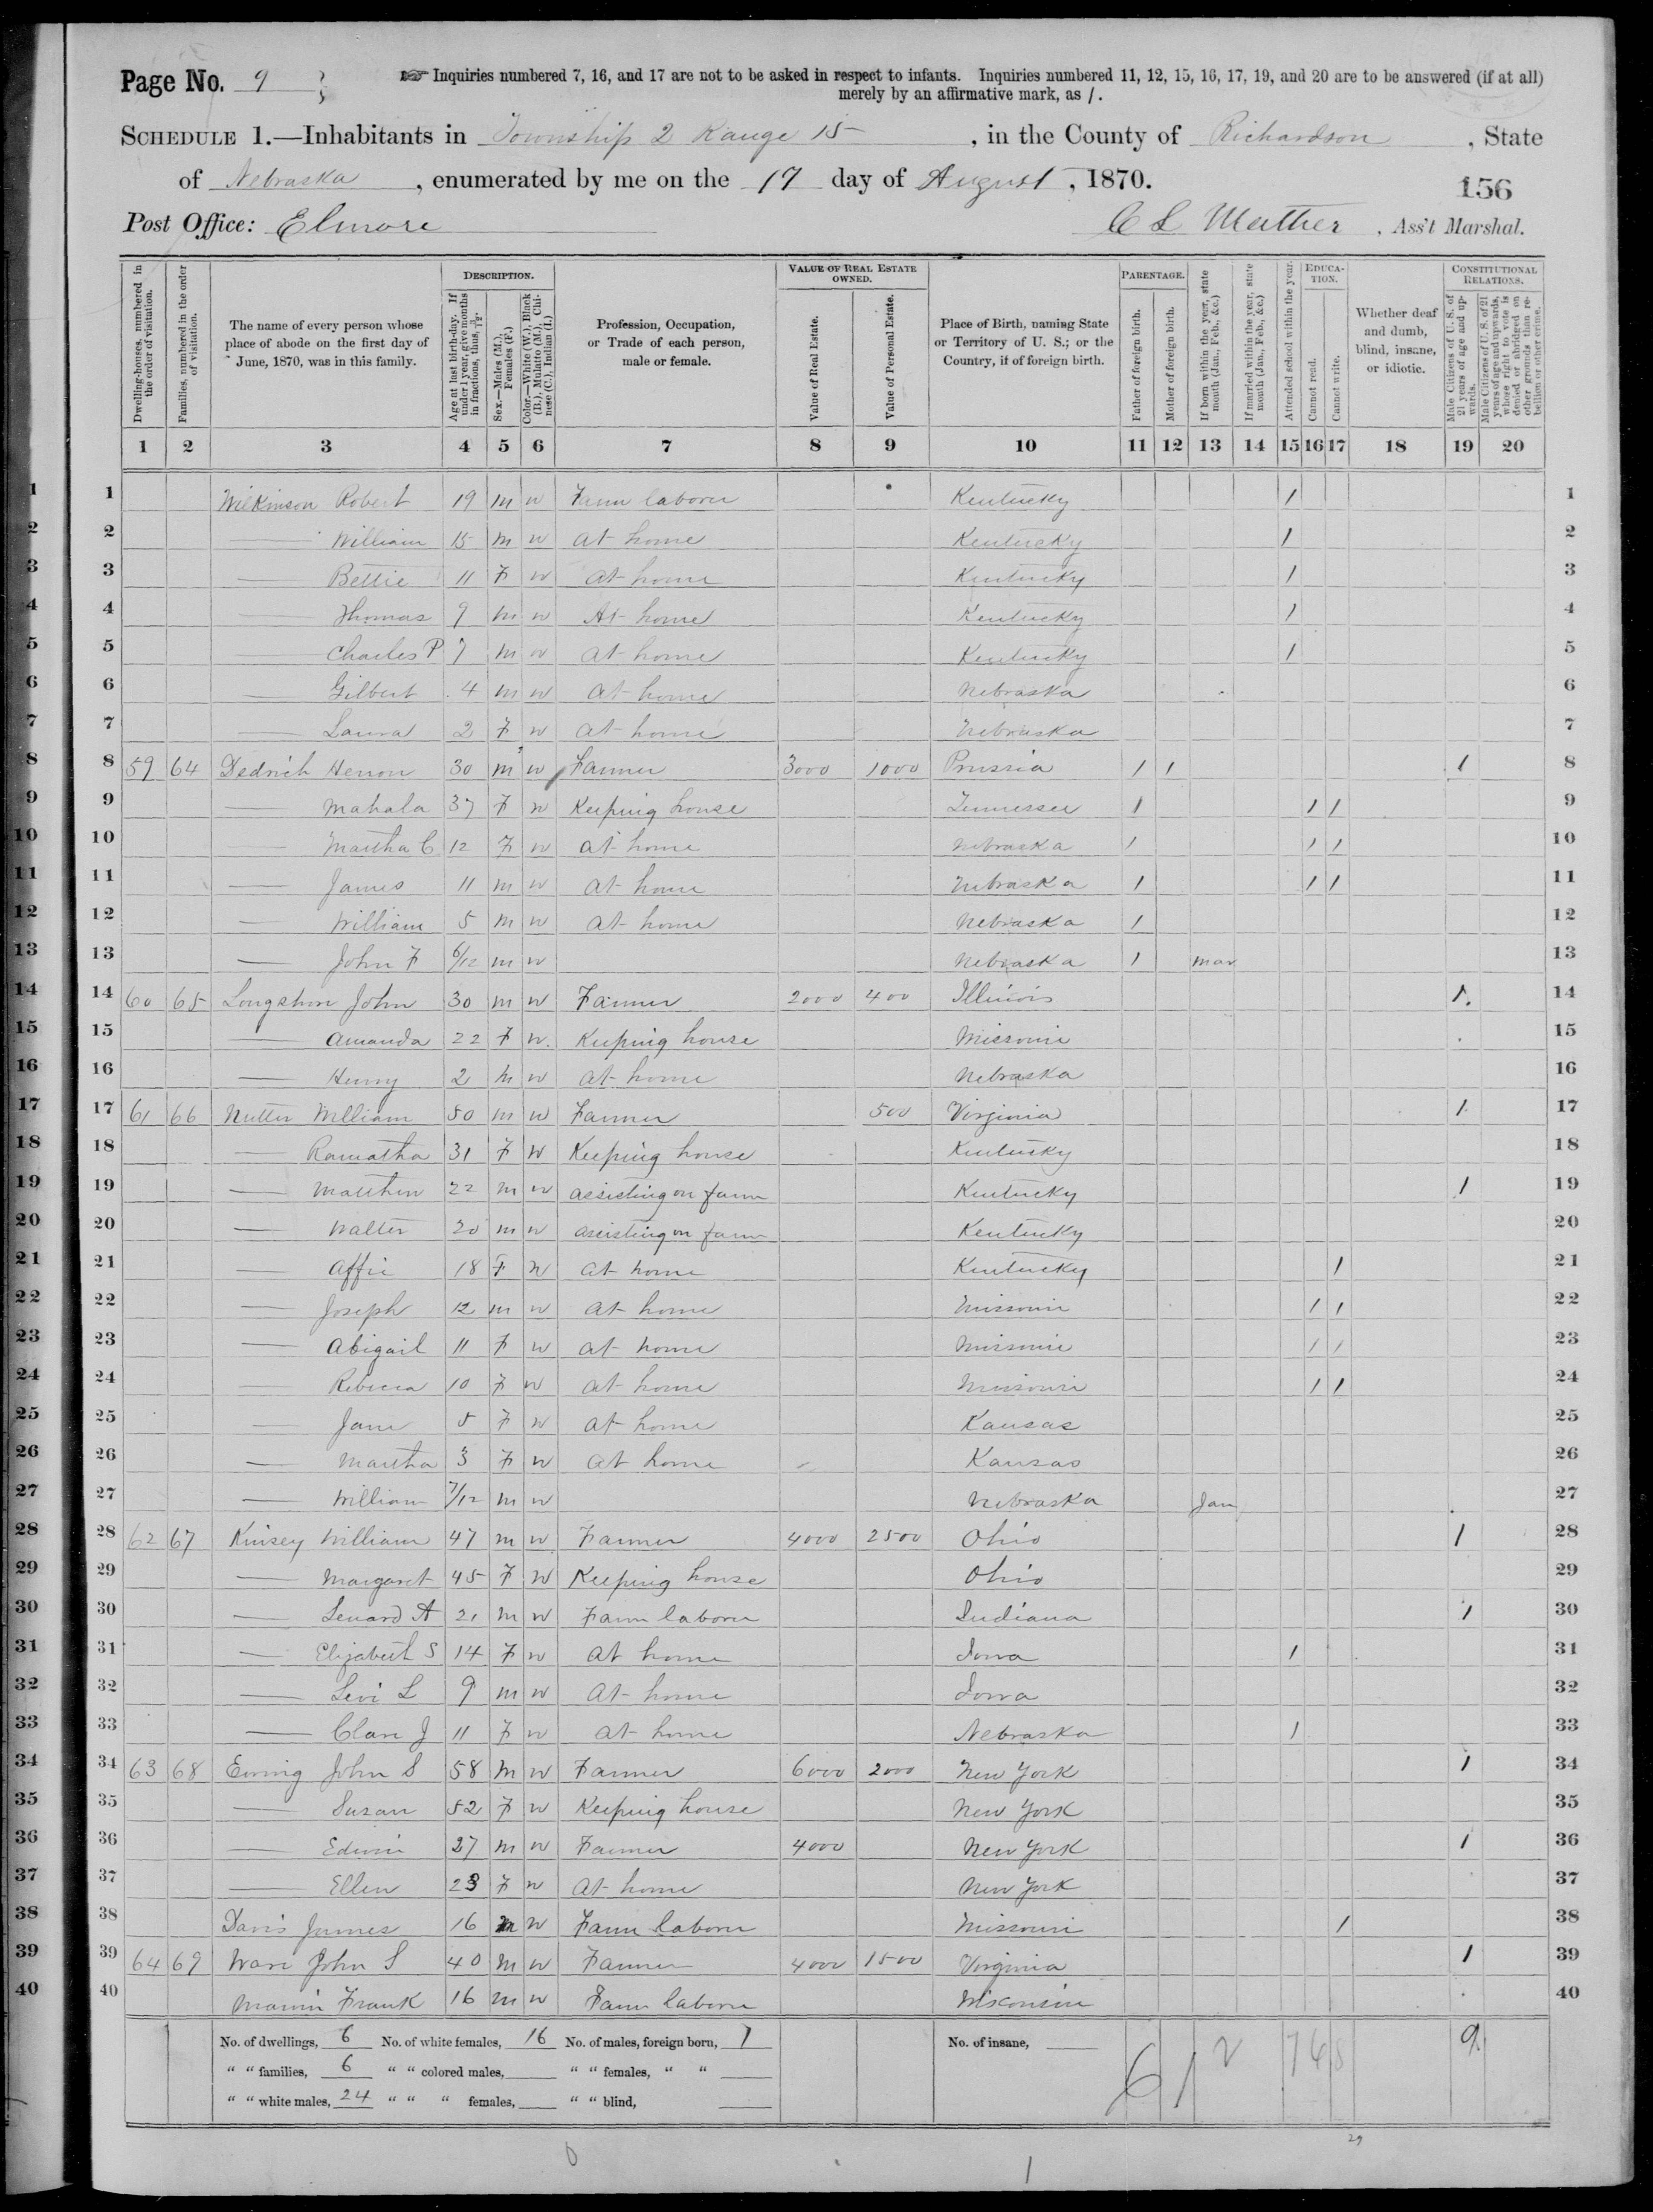 Page No. 9
☞ Inquiries numbered 7, 16, and 17 are not to be asked in respect to infants. Inquiries numbered 11, 12, 15, 16, 17, 19, and 20 are to be answered (if at all)
merely by an affirmative mark, as /.
SCHEDULE 1.—Inhabitants in Township 2 Range 15, in the County of Richardson, State
of Nebraska, enumerated by me on the 17 day of August, 1870.
156
Post Office: Elmore
C L Mather, Ass't Marshal.
Dwelling-houses, numbered in the order of visitation.
Families, numbered in the order of visitation.
The name of every person whose place of abode on the first day of June, 1870, was in this family.
DESCRIPTION.
Age at last birth-day. If under 1 year, give months in fractions, thus, 3/12.
Sex.—Males (M.), Females (F.)
Color.—White (W.), Black (B.), Mulatto (M.), Chinese (C.), Indian (I.)
Profession, Occupation, or Trade of each person, male or female.
VALUE OF REAL ESTATE OWNED.
Value of Real Estate.
Value of Personal Estate.
Place of Birth, naming State or Territory of U. S.; or the Country, if of foreign birth.
PARENTAGE.
Father of foreign birth.
Mother of foreign birth.
If born within the year, state month (Jan., Feb., &c.)
If married within the year, state month (Jan., Feb., &c.)
Attended school within the year.
EDUCATION.
Cannot read.
Cannot write.
Whether deaf and dumb, blind, insane, or idiotic.
CONSTITUTIONAL RELATIONS.
Male Citizens of U. S. of 21 years of age and upwards.
Male Citizens of U. S. of 21 years of age and upwards, whose right to vote is denied or abridged on other grounds than rebellion or other crime.
1 2 3 4 5 6 7 8 9 10 11 12 13 14 15 16 17 18 19 20
1 1 Wilkinson Robert 19 m w Farm laborer Kentucky / 1
2 2 — William 15 m w at home Kentucky / 2
3 3 — Bettie 11 F w at home Kentucky / 3
4 4 — Thomas 9 m w At home Kentucky / 4
5 5 — Charles P 7 m w at home Kentucky / 5
6 6 — Gilbert 4 m w at home Nebraska 6
7 7 — Laura 2 F w at home Nebraska 7
8 8 59 64 Dedrich Henon 30 m w Farmer 3000 1000 Prussia / / / 8
9 9 — Mahala 37 F w Keeping house Tennessee / / / 9
10 10 — Martha C 12 F w at home Nebraska / / / 10
11 11 — James 11 m w at home Nebraska / / / 11
12 12 — William 5 m w at home Nebraska / 12
13 13 — John F 6/12 m w Nebraska / mar 13
14 14 60 65 Longshore John 30 m w Farmer 2000 400 Illinois / 14
15 15 — Amanda 22 F w Keeping house Missouri 15
16 16 — Henry 2 m w at home Nebraska 16
17 17 61 66 Nutter William 50 m w Farmer 500 Virginia / 17
18 18 — Ramatha 31 F w Keeping house Kentucky 18
19 19 — Matthew 22 m w assisting on farm Kentucky / 19
20 20 — Walter 20 m w assisting on farm Kentucky 20
21 21 — Affie 18 F w at home Kentucky / 21
22 22 — Joseph 12 m w at home Missouri / / 22
23 23 — Abigail 11 F w at home Missouri / / 23
24 24 — Rebecca 10 F w at home Missouri / / 24
25 25 — Jane 5 F w at home Kansas 25
26 26 — Martha 3 F w at home Kansas 26
27 27 — William 7/12 m w Nebraska Jan 27
28 28 62 67 Kinsey William 47 m w Farmer 4000 2500 Ohio / 28
29 29 — Margaret 45 F w Keeping house Ohio 29
30 30 — Lenard A 21 m w Farm laborer Indiana / 30
31 31 — Elizabeth S 14 F w at home Iowa / 31
32 32 — Levi L 9 m w at home Iowa 32
33 33 — Clara J 11 F w at home Nebraska / 33
34 34 63 68 Ewing John S 58 m w Farmer 6000 2000 New York / 34
35 35 — Susan 52 F w Keeping house New York 35
36 36 — Edwin 27 m w Farmer 4000 New York / 36
37 37 — Ellen 23 F w at home New York 37
38 38 Davis James 16 m w Farm laborer Missouri / 38
39 39 64 69 Ware John S 40 m w Farmer 4000 1500 Virginia / 39
40 40 Frank 16 m w Farm laborer Wisconsin 40
No. of dwellings, 6 No. of white females, 16 No. of males, foreign born, 1 No. of insane,
" " families, 6 " " colored males, " " females, " "
" " white males, 24 " " " females, " " blind,
6 1 2 7 4 8 9
29
0 1